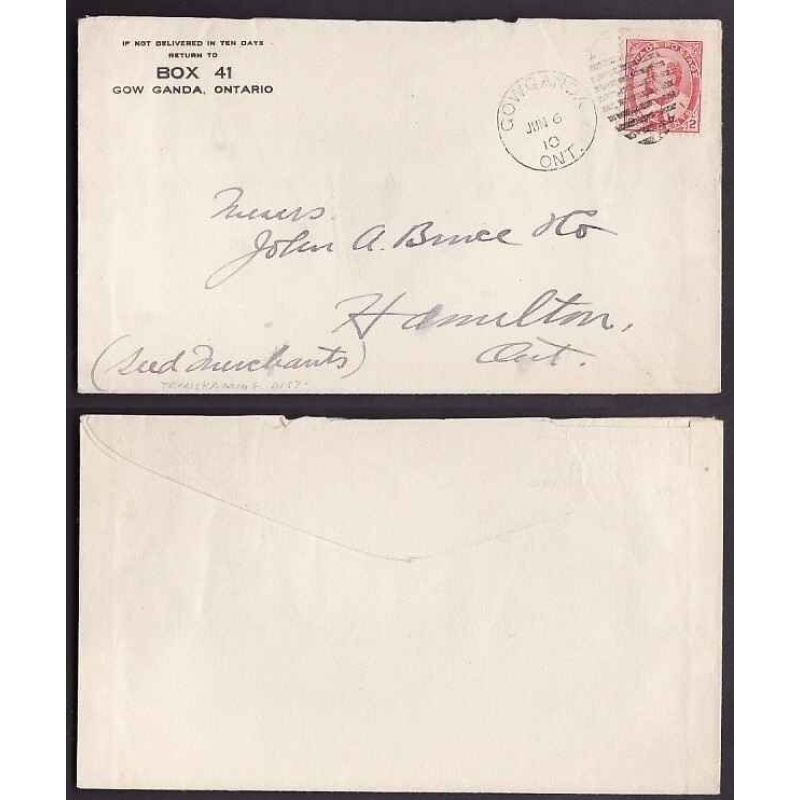 IF NOT DELIVERED IN TEN DAYS
RETURN TO
BOX 41
GOW GANDA, ONTARIO
GOWGANDA
JUN 6
10
ONT.
POSTAGE
2
Messrs.
John A. Bruce & Co
Hamilton,
Ont.
(Seed Merchants)
TEMISKAMING DIST.